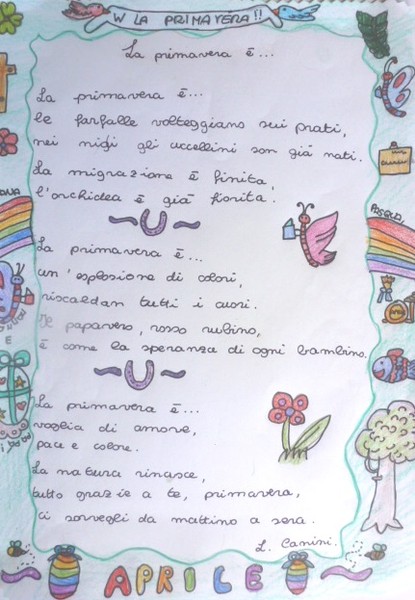 W LA PRIMAVERA!!
La primavera è...
La primavera è...
le farfalle volteggiano sui prati,
nei nidi gli uccellini son già nati.
La migrazione è finita,
l'orchidea è già fiorita.
La primavera è...
un'esplosione di colori,
riscaldan tutti i cuori.
Il papavero, rosso rubino,
è come la speranza di ogni bambino.
La primavera è...
voglia di amore,
pace e colore.
La natura rinasce,
tutto grazie a te, primavera,
ci sorvegli da mattino a sera.
L. Canini.
APRILE